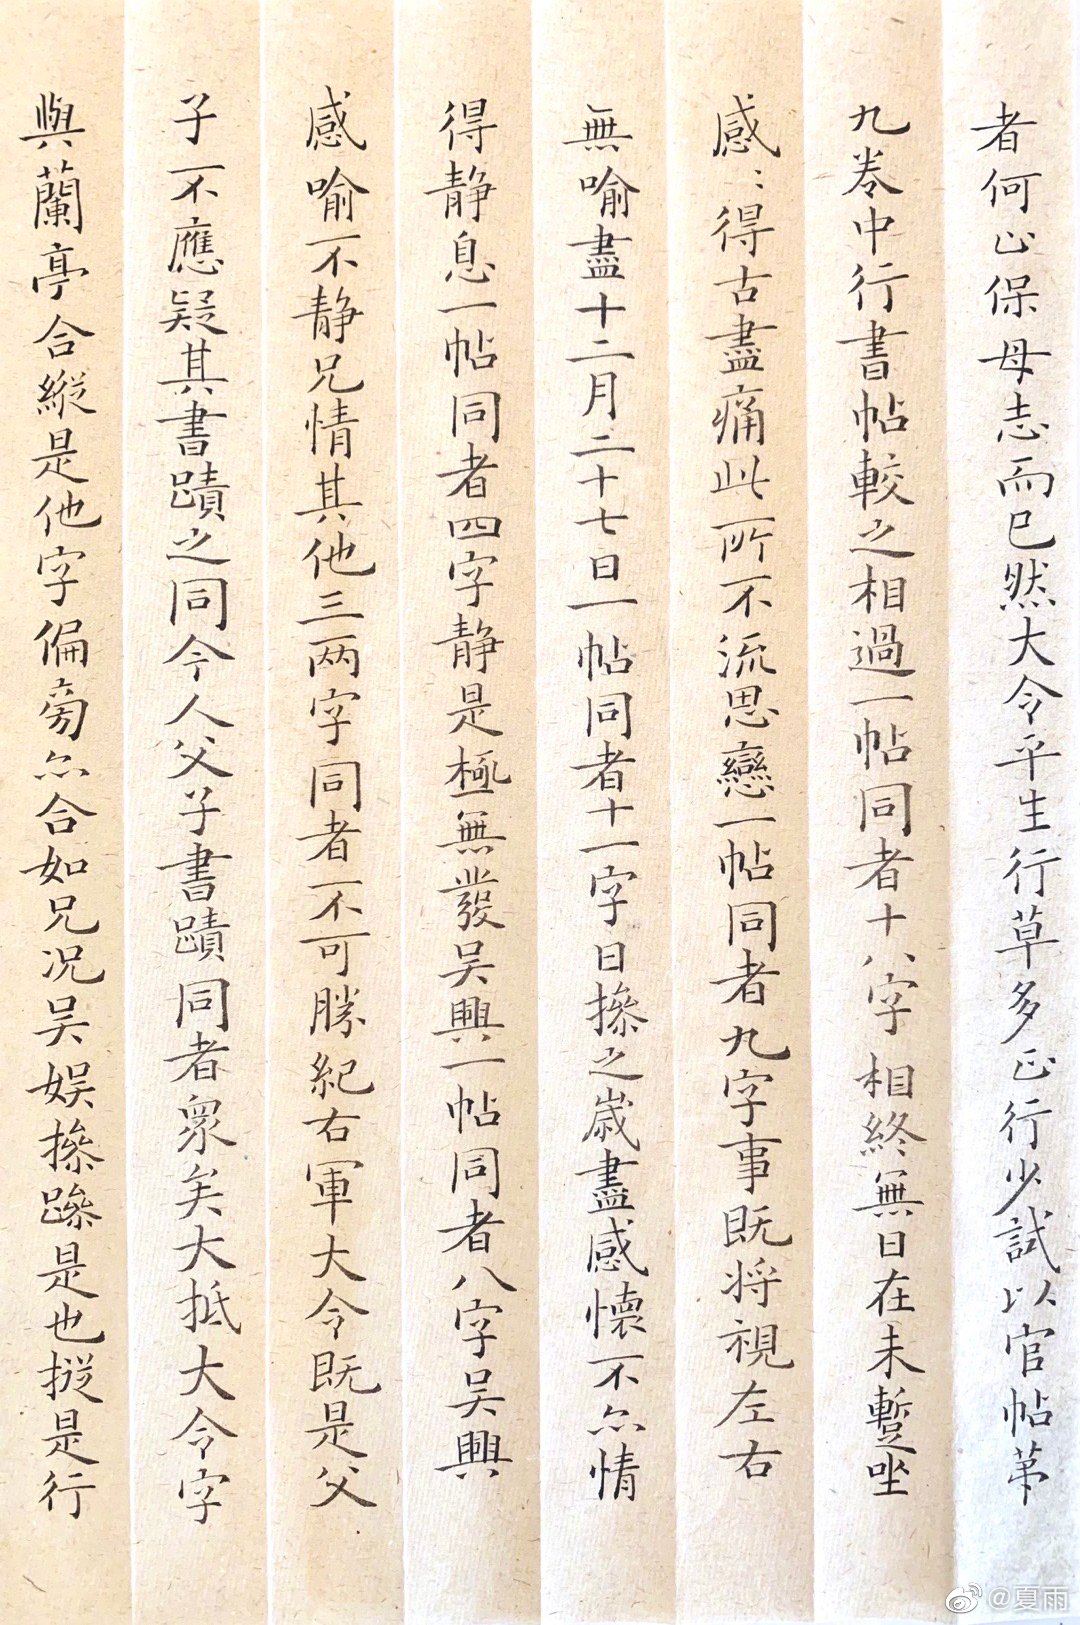 者何止保母志而已然大令平生行草多正行少試以官帖苐
九卷中行書帖較之相過一帖同者十八字相終無日在未蹔坐
感〻得古盡痛此所不流思戀一帖同者九字事既将視左右
無喻盡十二月二十七日一帖同者十一字日摻之歳盡感懐不亦情
得静息一帖同者四字静是極無發吴興一帖同者八字吴興
感喻不静兄情其他三两字同者不可勝紀右軍大令既是父
子不應疑其書蹟之同今人父子書蹟同者衆矣大抵大令字
與蘭亭合縱是他字偏旁亦合如兄况吴娱摻蹂是也搃是行
@夏雨